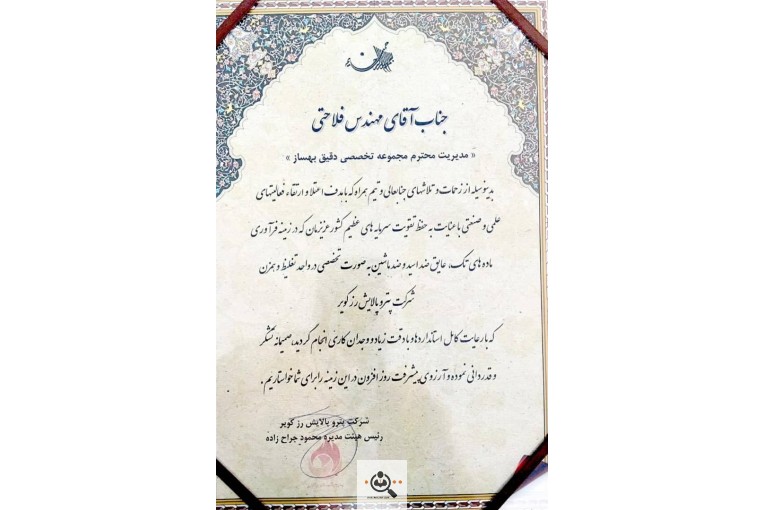 جناب آقای مهندس فلاحتی
« مدیریت محترم مجموعه تخصصی دقیق بهساز »
بدینوسیله از زحمات و تلاشهای جنابعالی و تیم همراه که با هدف اعتلا و ارتقاء فعالیتهای
علمی و صنعتی با عنایت به حفظ تقویت سرمایه های عظیم کشور عزیزمان که در زمینه فرآوری
ماده های تک، عایق ضد اسید و ضد ماشین به صورت تخصصی در واحد تغلیظ و همزن
شرکت پترو پالایش رز کویر
که با رعایت کامل استانداردها و با دقت زیاد و وجدان کاری انجام گردید، صمیمانه تشکر
و قدردانی نموده و آرزوی پیشرفت روز افزون در این زمینه را برای شما خواستاریم.
شرکت پترو پالایش رز کویر
رئیس هیئت مدیره محمود جراح زاده